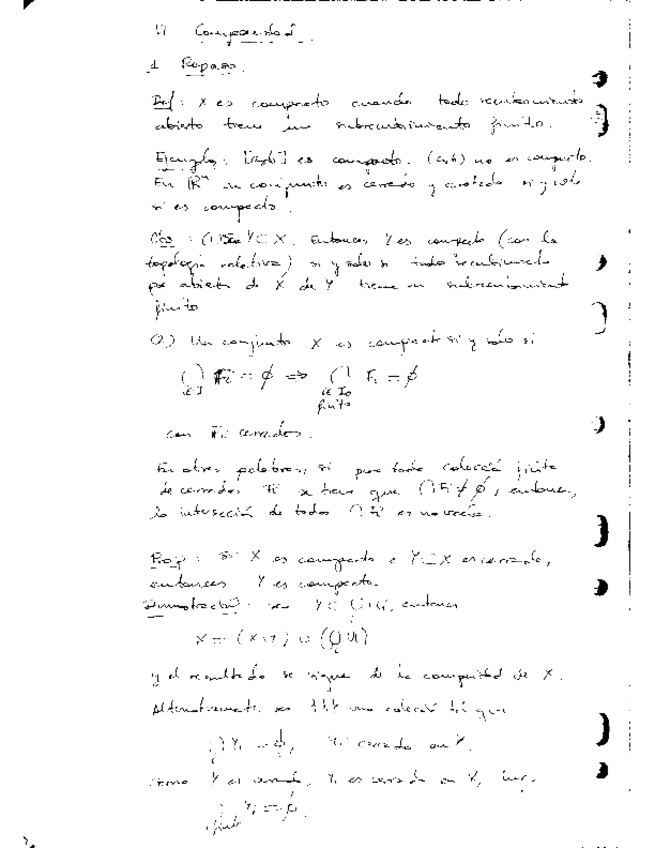 Compacidad
1 Repaso.
Def: X es compacto cuando todo recubrimiento
abierto tiene un subrecubrimiento finito.
Ejemplo: [a,b] es compacto. (a,b) no es compacto.
En ℝⁿ un conjunto es cerrado y acotado si y sólo
si es compacto.
Obs: (1) Sea Y⊂X. Entonces Y es compacto (con la
topología relativa) si y sólo si todo recubrimiento
por abiertos de X de Y tiene un subrecubrimiento
finito
(2) Un conjunto X es compacto si y sólo si
⋂ Fi = ∅ ⟹ ⋂ Fi = ∅
i∈I i∈I₀
finito
con Fi cerrados.
En otras palabras, si para toda colección finita
de cerrados Fi se tiene que ⋂Fi ≠ ∅, entonces,
la intersección de todos ⋂Fi es no vacía.
Prop: Si X es compacto e Y⊂X es cerrado,
entonces Y es compacto.
Demostración: sea Y⊂ ⋃Ui, entonces
X = (X\Y) ∪ (⋃Ui)
y el resultado se sigue de la compacidad de X.
Alternativamente, sea una colección tal que
⋂Yi = ∅, Yi cerrado en Y.
Como Y es cerrado, Yi es cerrado en X,
⋂ Yi = ∅.
finito